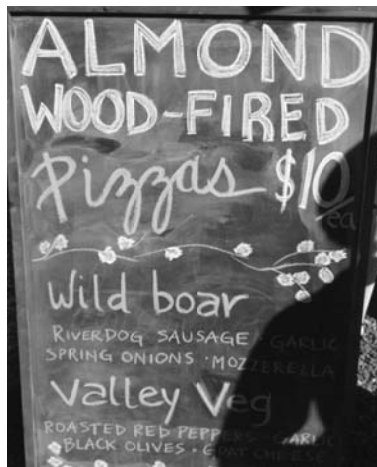 ALMOND
WOOD-FIRED
Pizzas $10/ea
Wild boar
RIVERDOG SAUSAGE · GARLIC
SPRING ONIONS · MOZZERELLA
Valley Veg
ROASTED RED PEPPERS · GARLIC
BLACK OLIVES · GOAT CHEESE